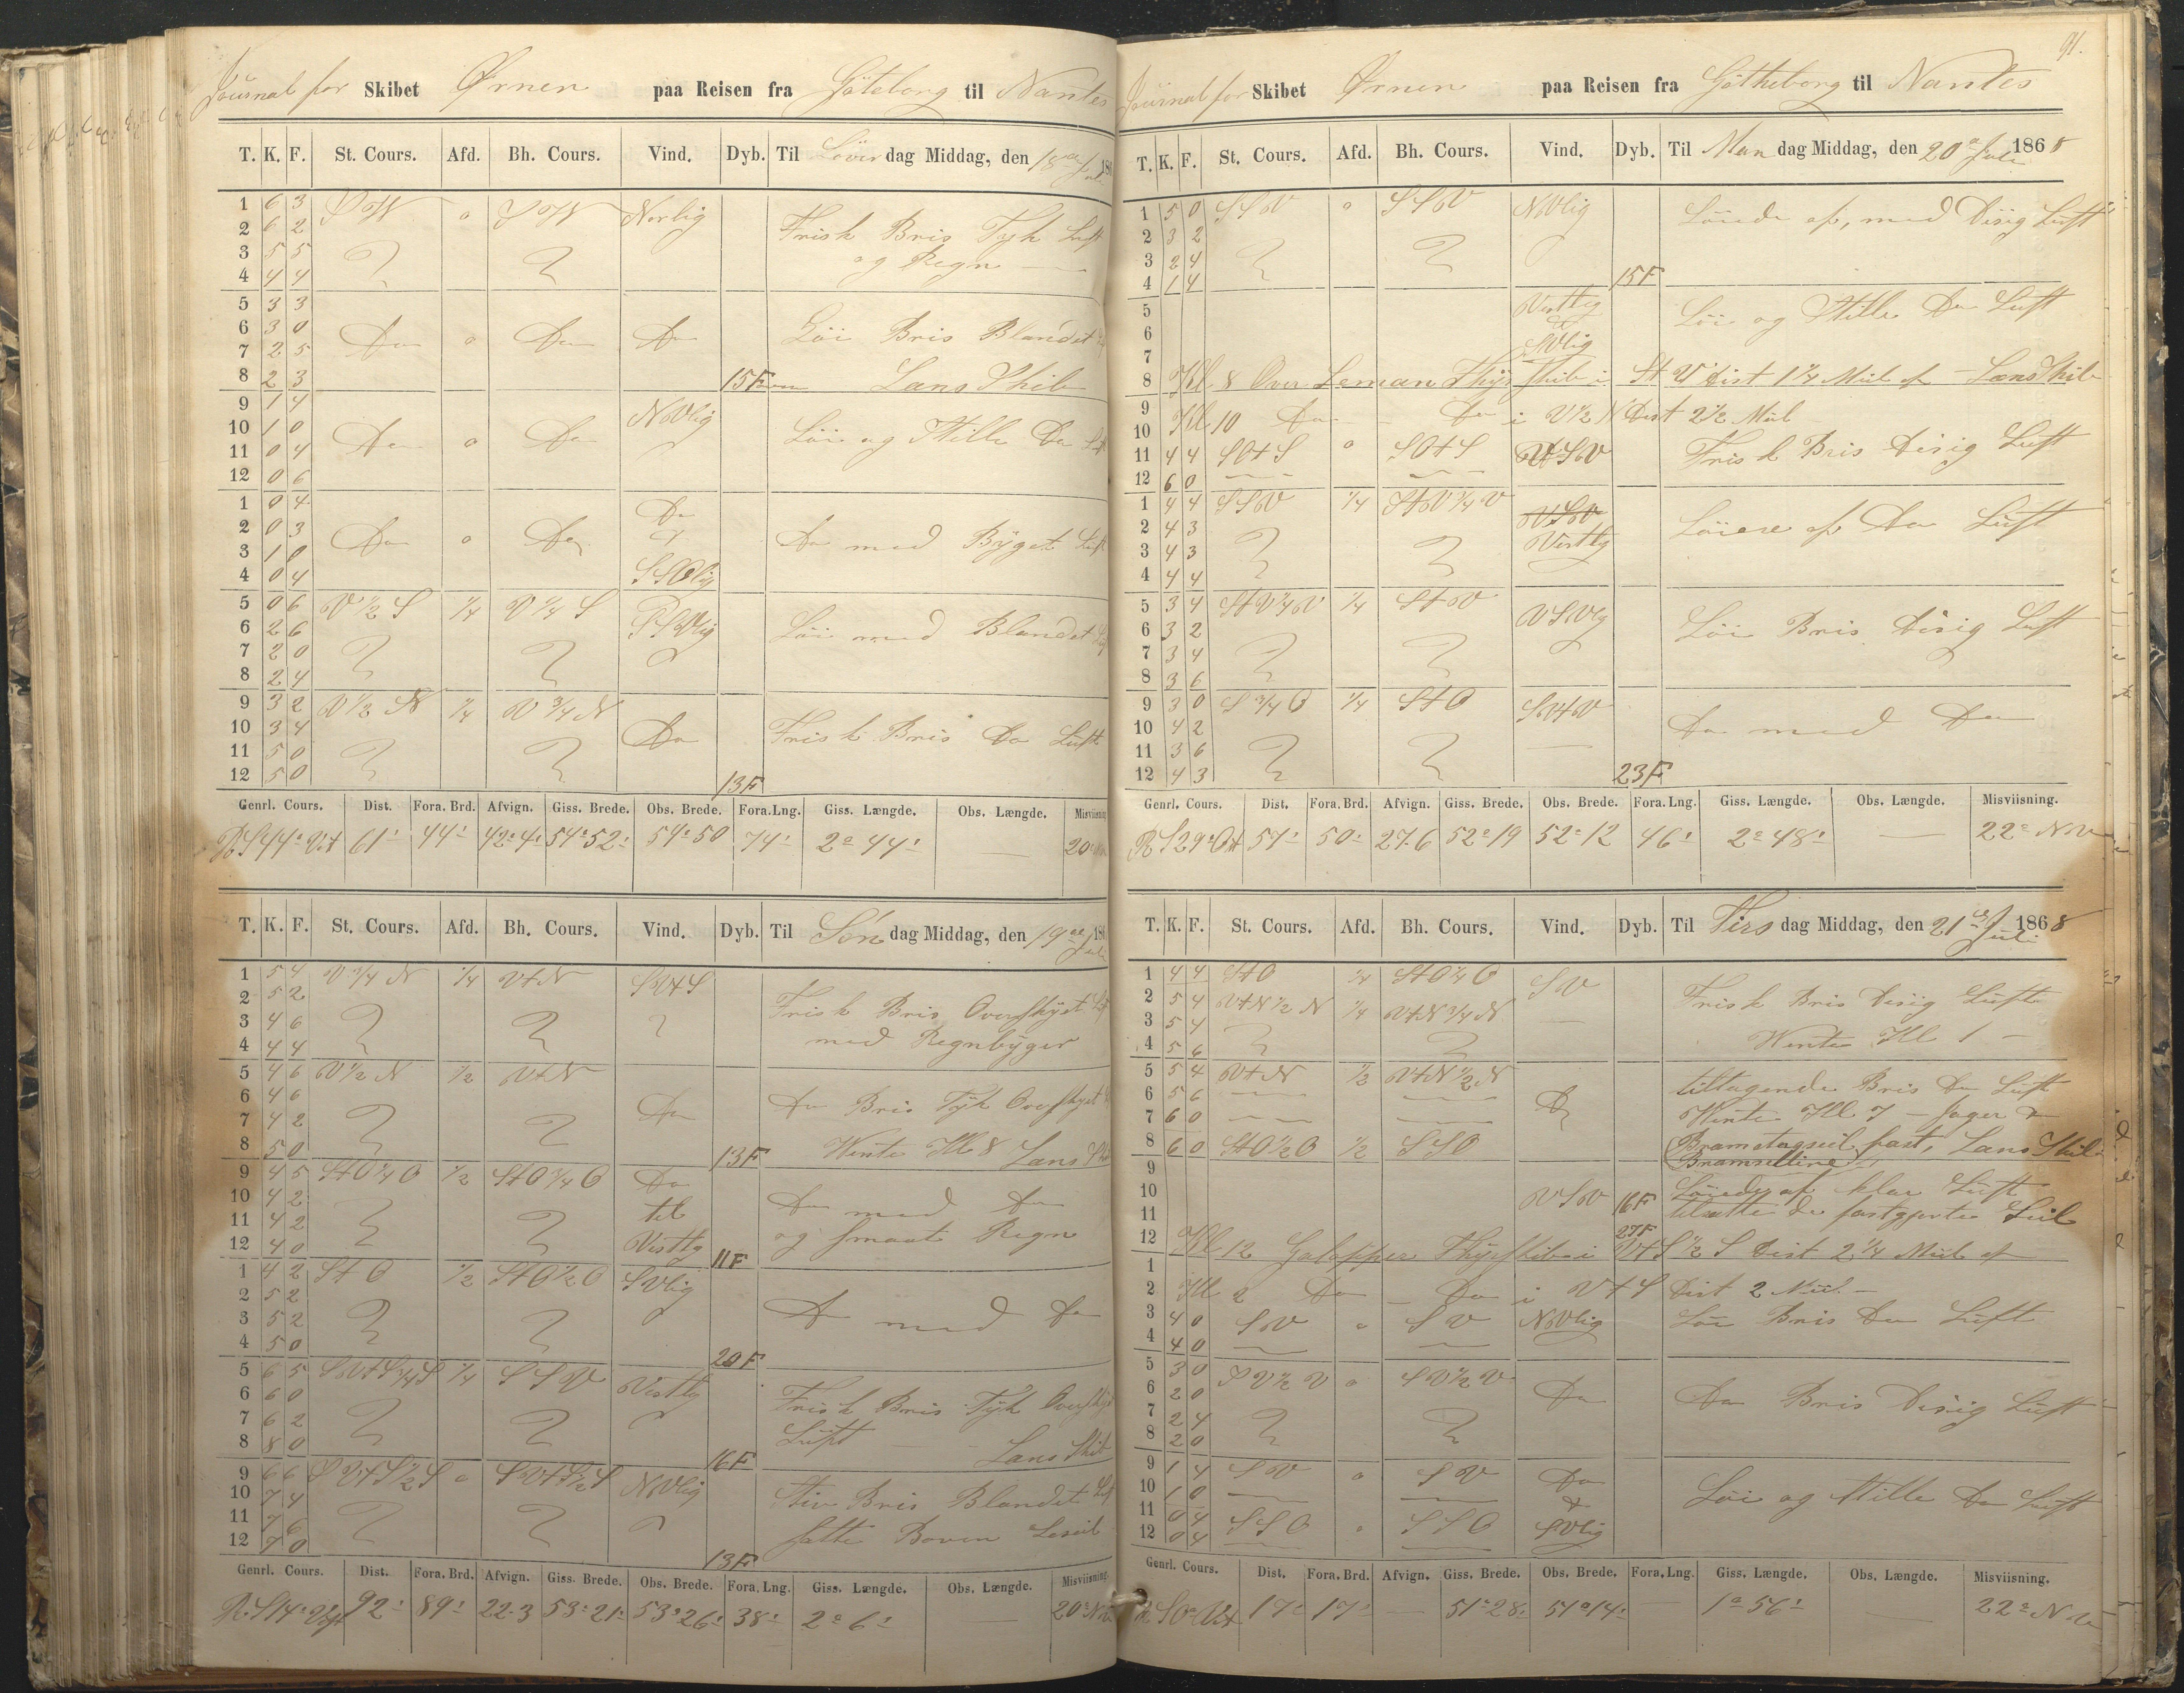 Journal for Skibet Ørnen paa Reisen fra Göteborg til Nantes
T. K. F. St. Cours. Afd. Bh. Cours. Vind. Dyb. Til Löverdag Middag, den 18de Juli 186
1 6 3 StW o StW Norlig
2 6 2 Frisk Bris Tyk Luft
3 5 5 og Regn
4 4 4
5 3 3
6 3 0 Do o Do Do Löi Bris Blandet
7 2 5
8 2 3 15F Lans Skib
9 1 4 NVlig
10 1 0 Do o Do Löi og Stille Do
11 0 4
12 0 6
1 0 4 Do
2 0 3 Do o Do Do med Byget Luft
3 1 0
4 0 4 SSOlig
5 0 6 V 1/2 S 1/4 V 1/4 S SSVlig
6 2 6 Löi med Blandet
7 2 0
8 2 4
9 3 2 V 1/2 N 1/4 V 3/4 N
10 3 4 Do Frisk Bris Do Luft
11 5 0
12 5 0 13F
Genrl. Cours. Dist. Fora. Brd. Afvign. Giss. Brede. Obs. Brede. Fora. Lng. Giss. Længde. Obs. Længde. Misviisning
R S 44° Vst 61' 44' 42°4' 54°52' 54°50 74' 2°44' — 20°
T. K. F. St. Cours. Afd. Bh. Cours. Vind. Dyb. Til Søndag Middag, den 19de Juli 186
1 5 4 V 3/4 N 1/4 VtN SVtS
2 5 2 Frisk Bris Overskyet
3 4 6 med Regnbyger
4 4 4
5 4 6 V 1/2 N 1/2 VtN
6 4 6 Do Do Bris Tyk Overskyet
7 4 2
8 5 0 13F Wente Kl 8 Lans
9 4 5 StO 1/4 O 1/2 StO 3/4 O Do
10 4 2 til Do med Do
11 4 2 og smaat Regn
12 4 0 Vestlg 11F
1 4 2 StO 1/2 StO 1/2 O SVlig
2 5 2 Do med Do
3 5 2
4 5 0 20F
5 6 5 SVtS 3/4 S 1/4 SSV Vestlg
6 6 0 Frisk Bris Tyk Oversky
7 6 2 Luft
8 8 0 16F Lans Skib
9 6 6 SVtS 1/2 S o SVtS 1/2 S NVlig
10 7 4 Stiv Bris Blandet
11 7 6
12 7 0 13F satte Boven Leseil
Genrl. Cours. Dist. Fora. Brd. Afvign. Giss. Brede. Obs. Brede. Fora. Lng. Giss. Længde. Obs. Længde. Misviisning.
R. S 14° Vst 92' 89' 22.3 53°21' 53°26' 38' 2°6' — 20°
91.
Journal for Skibet Ørnen paa Reisen fra Götheborg til Nantes
T. K. F. St. Cours. Afd. Bh. Cours. Vind. Dyb. Til Mandag Middag, den 20de Juli 1868
1 5 0 SSV o SSV NVlig Löiede af, med Disig Luft
2 3 2
3 2 4
4 1 4 15F
5 Vestlig
6 Löi og Stille Do Luft
7 SVlig
8 Kl 8 Over Leman Fyrskib i StV Dist 1 1/4 Miil af – Lans Skib
9
10 Kl 10 Do – Do i V 1/2 N Dist 2 1/2 Miil
11 4 4 SOtS o SOtS VSV Frisk Bris Disig Luft
12 6 0
1 4 4 SSV 1/4 StV 3/4 V VSV
2 4 3 Vestlg Löiere af Do Luft
3 4 3
4 4 4
5 3 4 StV 1/4 V 1/4 StV VSVlig
6 3 2 Löi Bris Disig Luft
7 3 4
8 3 6
9 3 0 S 3/4 O 1/4 StO SVtV
10 4 2 Do med Do
11 3 6
12 4 3 23F
Genrl. Cours. Dist. Fora. Brd. Afvign. Giss. Brede. Obs. Brede. Fora. Lng. Giss. Længde. Obs. Længde. Misviisning.
R S 29° Ost 57' 50' 27.6 52°19 52°12 46' 2°48' — 22° NV
T. K. F. St. Cours. Afd. Bh. Cours. Vind. Dyb. Til Tirsdag Middag, den 21de Juli 1868
1 4 4 StO 1/4 StO 1/4 O SV
2 5 4 VtN 1/2 N 1/4 VtN 3/4 N Frisk Bris Disig Luft
3 5 4
4 5 6 Wente Kl 1 –
5 5 4 VtN 1/2 VtN 1/2 N tiltagende Bris Do Luft
6 5 6 Do
7 6 0 Wente Kl 7 –
8 6 0 StO 1/2 O 1/2 SSO Bramstagseil fast, Lans Skib
9
10 VSV 16F Löiede af klar Luft
11 tilsatte de fastgjorte Seil
12 Kl 12 Galopper Fyrskib i 27F VtS 1/2 S Dist 2 1/4 Miil af
1
2 Kl 2 Do – Do i VtS Dist 2 Miil –
3 4 0 SV o SV NVlig Löi Bris Do Luft
4 4 0
5 3 0 SV 1/2 V o SV 1/2 V
6 2 0 Do Do Bris Disig Luft
7 2 4
8 2 0
9 1 4 SV o SV Do
10 1 0 Löi og Stille Do Luft
11 0 4 SSO o SSO
12 0 4 SVlig
Genrl. Cours. Dist. Fora. Brd. Afvign. Giss. Brede. Obs. Brede. Fora. Lng. Giss. Længde. Obs. Længde. Misviisning.
R S 0° Vst 17' 17' — 51°28' 51°14' — 1°56' — 22° NV